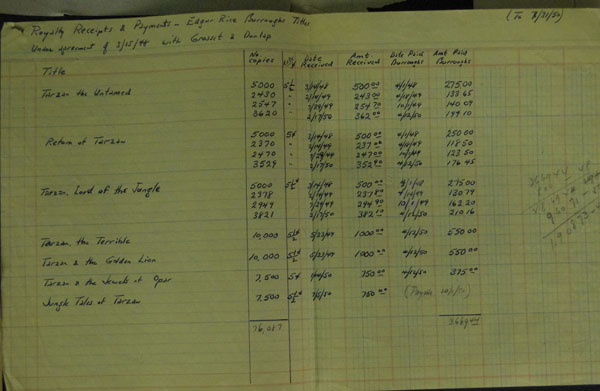 Royalty Receipts & Payments - Edgar Rice Burroughs Titles (To 8/31/50)
Under agreement of 2/25/48 with Grosset & Dunlap
Title No copies Date Received Amt. Received Date Paid Burroughs Amt Paid Burroughs
Tarzan the Untamed
5000 5½ 500.00 4/1/48 275.00
2430 " 243.00 133.65
2547 " 254.70 140.09
3620 " 2/17/50 362.00 4/12/50 199.10
Return of Tarzan
5000 5¢ 500.00 250.00
2370 " 237.00 118.50
2470 " 247.00 123.50
3529 " 2/17/50 352.90 4/12/50 176.45
Tarzan, Lord of the Jungle
5000 5½¢ 500.00 275.00
2378 " 130.79
2949 " 294.90 10/1/49 162.20
3821 2/17/50 382.10 4/12/50 210.16
Tarzan, the Terrible 10,000 5½¢ 5/23/49 1000.00 4/12/50 550.00
Tarzan & the Golden Lion 10,000 5½¢ 5/23/49 1000.00 4/12/50 550.00
Tarzan & the Jewels of Opar 7,500 5¢ 750.00 4/12/50 375.00
Jungle Tales of Tarzan 7,500 5½¢ 750.00
76,087 3669.44